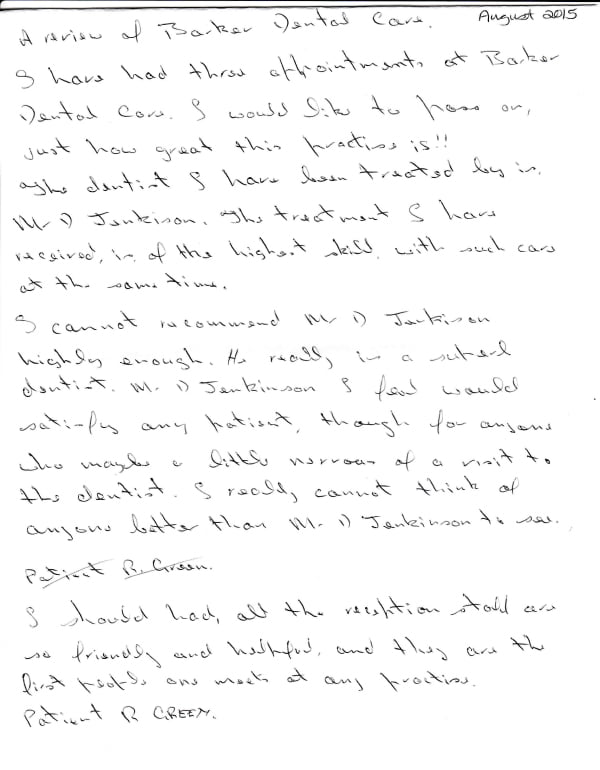 August 2015
A review of Barker Dental Care.
I have had three appointments at Barker
Dental Care. I would like to pass on,
just how great this practise is!!
The dentist I have been treated by is,
Mr D Jenkinson. The treatment I have
received, is of the highest skill, with such care
at the same time.
I cannot recommend Mr D Jenkinson
highly enough. He really is a superb
dentist. Mr D Jenkinson I feel would
satisfy any patient, though for anyone
who maybe a little nervous of a visit to
the dentist. I really cannot think of
anyone better than Mr D Jenkinson to see.
Patient R. Green.
I should had, all the reception staff are
so friendly and helpful, and they are the
first people one meets at any practise.
Patient R GREEN.